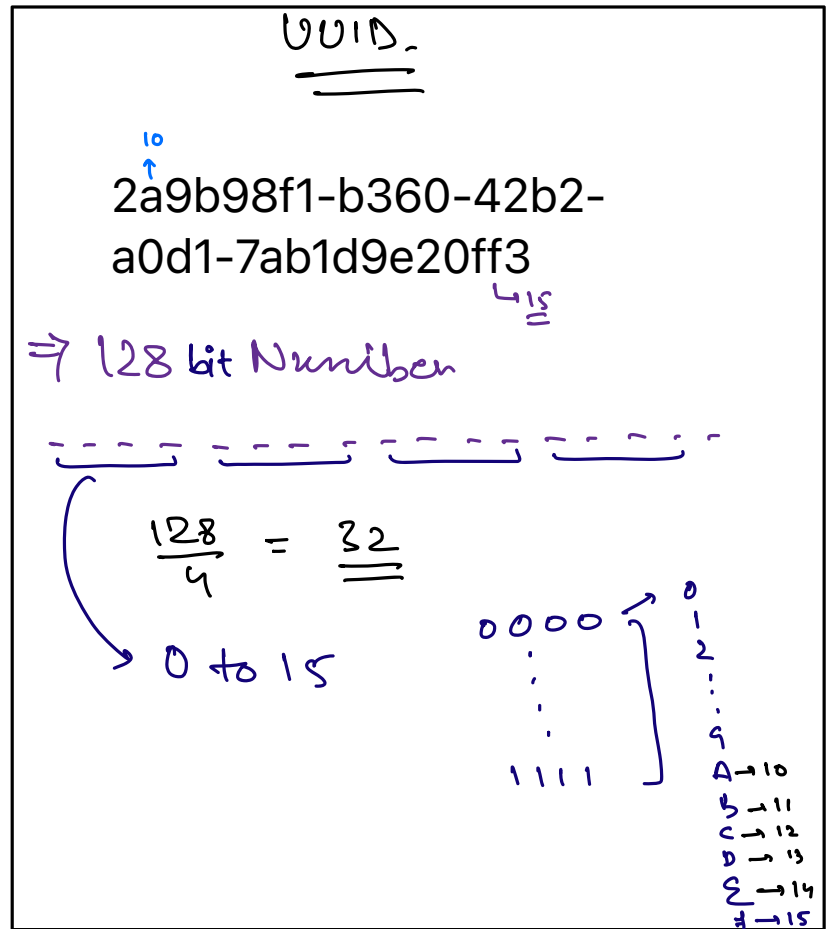 UUID.
10
↑
2a9b98f1-b360-42b2-
a0d1-7ab1d9e20ff3
↳15
⇒ 128 bit Number
128/4 = 32
0 to 15
0000 → 0
1
2
9
1111
A → 10
B → 11
C → 12
D → 13
E → 14
f → 15